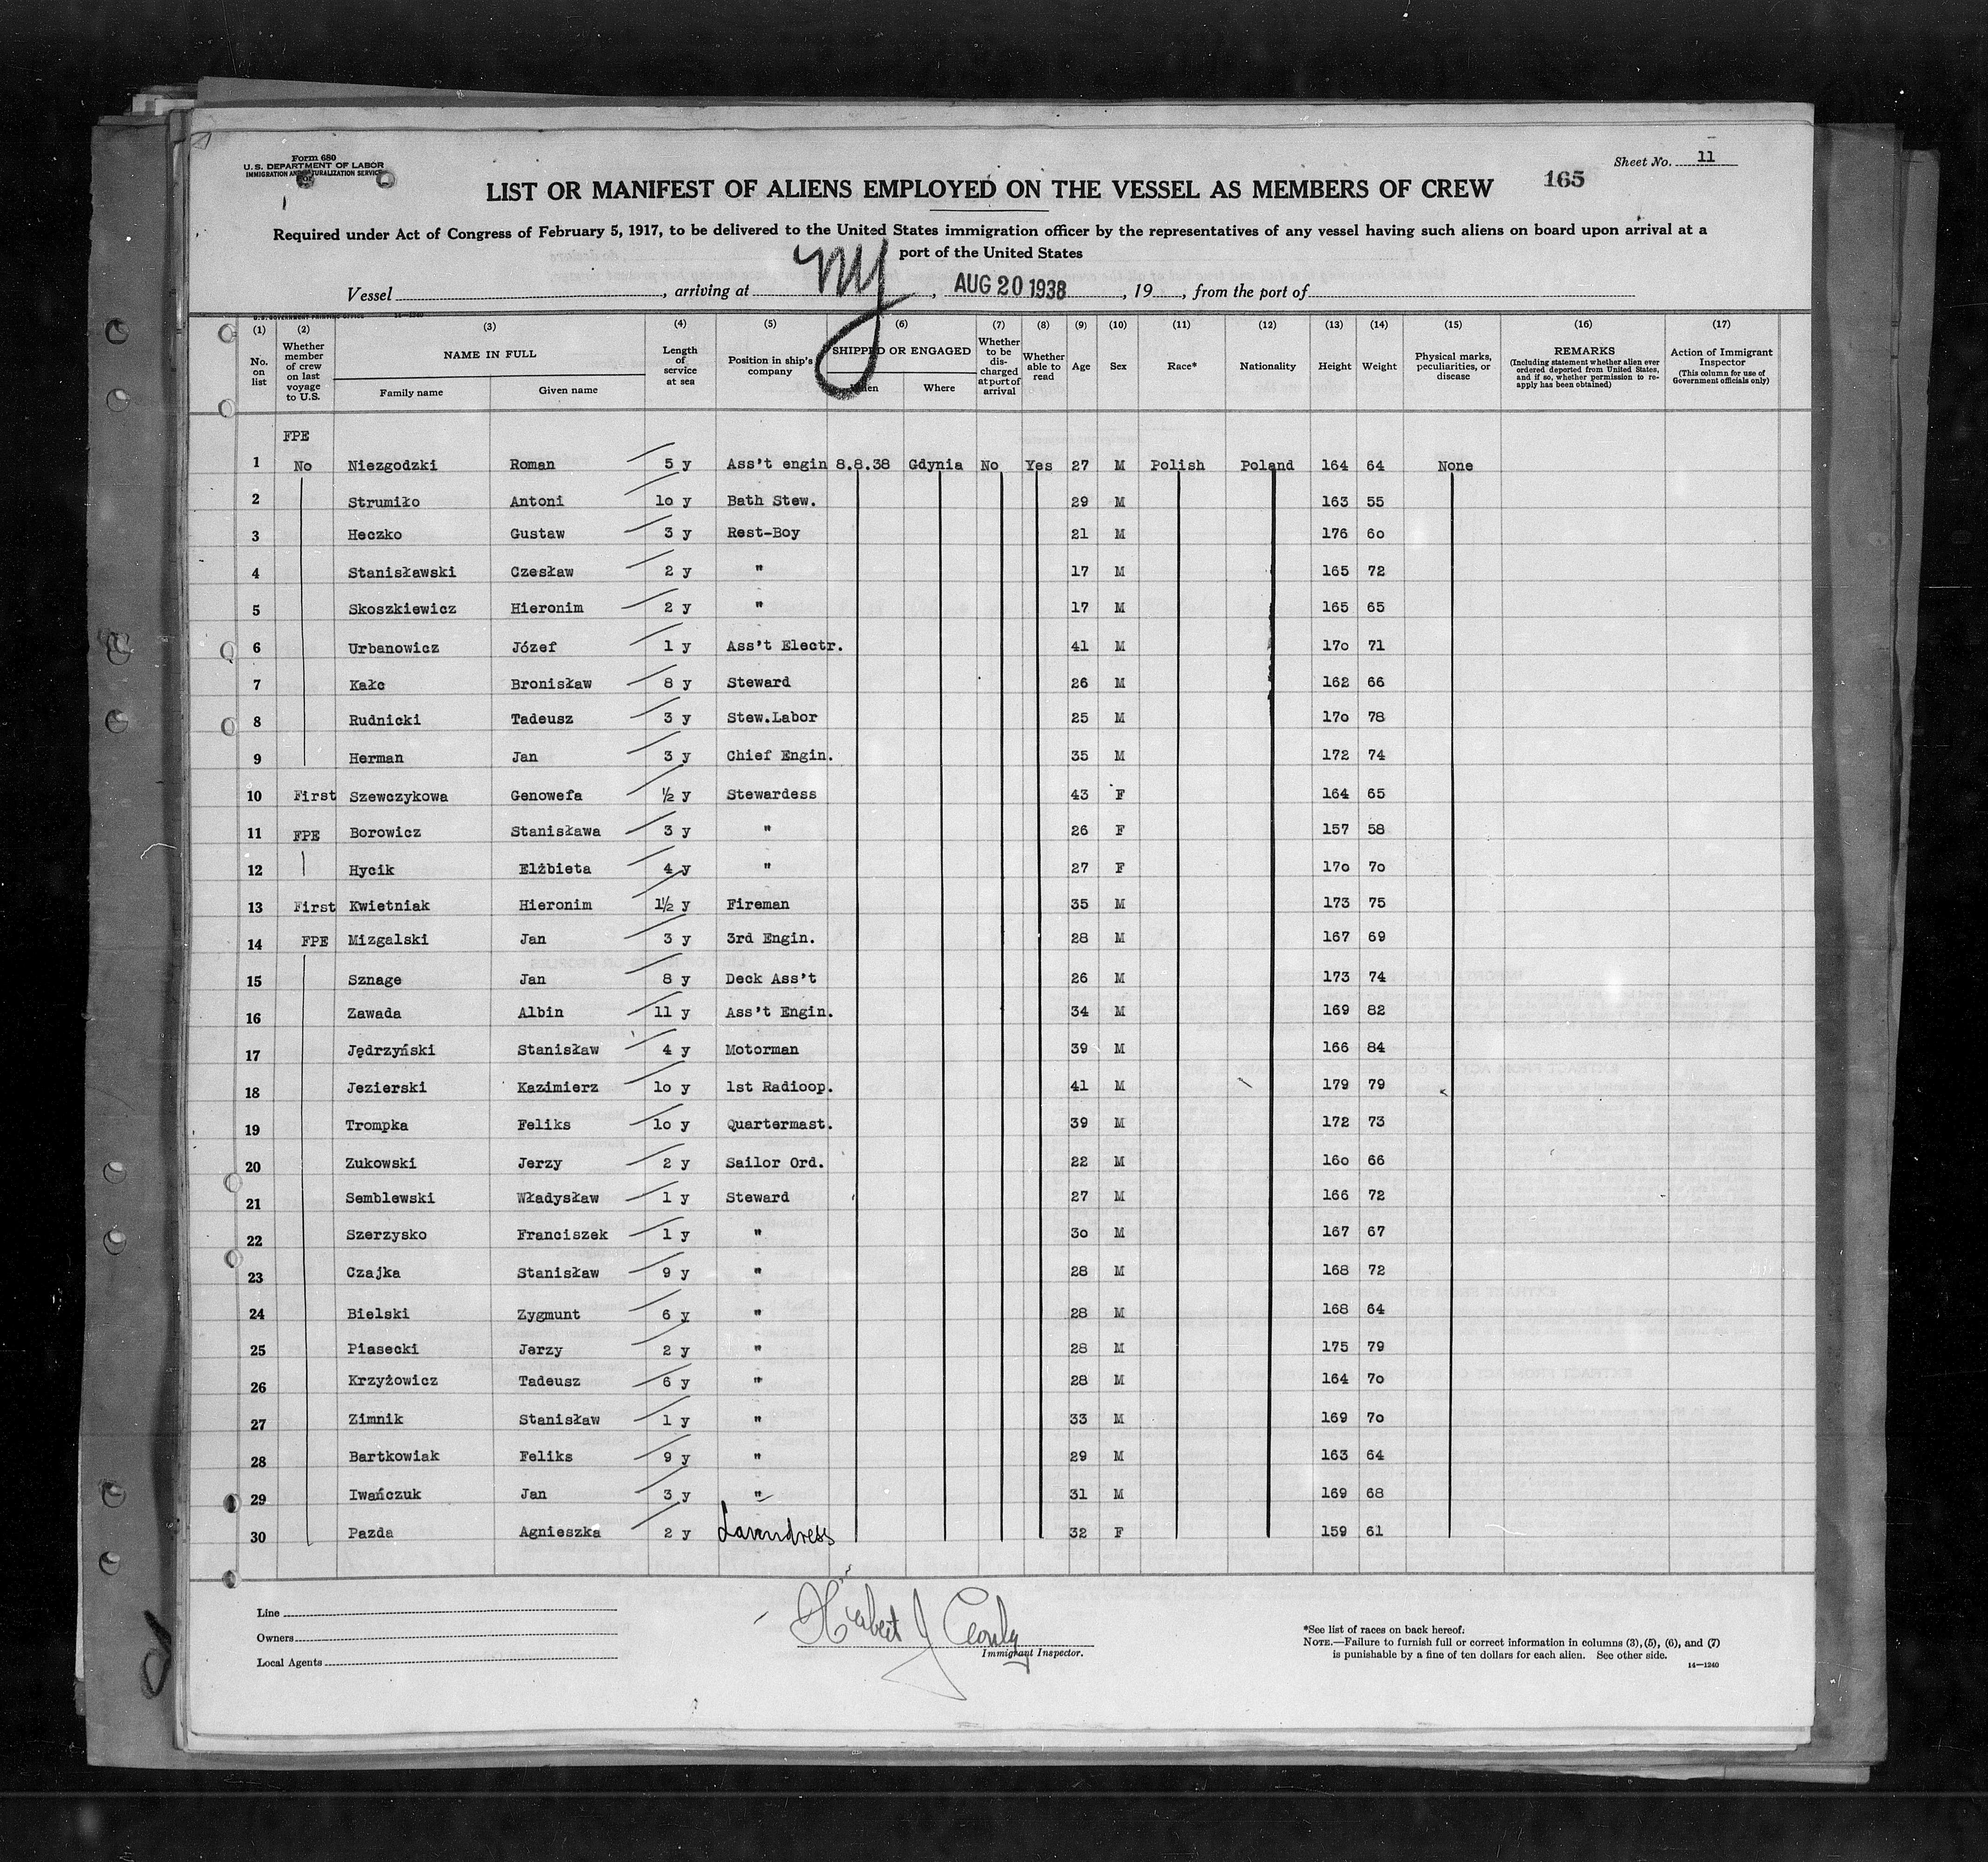 Form 680
U. S. DEPARTMENT OF LABOR
IMMIGRATION AND NATURALIZATION SERVICE
Sheet No. 11
165
LIST OR MANIFEST OF ALIENS EMPLOYED ON THE VESSEL AS MEMBERS OF CREW
Required under Act of Congress of February 5, 1917, to be delivered to the United States immigration officer by the representatives of any vessel having such aliens on board upon arrival at a
port of the United States
Vessel , arriving at NY , AUG 20 1938 , 19 , from the port of
U. S. GOVERNMENT PRINTING OFFICE 14-1240
(1) (2) (3) (4) (5) (6) (7) (8) (9) (10) (11) (12) (13) (14) (15) (16) (17)
No. on list Whether member of crew on last voyage to U.S. NAME IN FULL Family name Given name Length of service at sea Position in ship's company SHIPPED OR ENGAGED When Where Whether to be discharged at port of arrival Whether able to read Age Sex Race* Nationality Height Weight Physical marks, peculiarities, or disease REMARKS (Including statement whether alien ever ordered deported from United States, and if so, whether permission to reapply has been obtained) Action of Immigrant Inspector (This column for use of Government officials only)
FPE
1 No Niezgodzki Roman 5 y Ass't engin 8.8.38 Gdynia No Yes 27 M Polish Poland 164 64 None
2 Strumiło Antoni 1o y Bath Stew. 29 M 163 55
3 Heczko Gustaw 3 y Rest-Boy 21 M 176 6o
4 Stanisławski Czesław 2 y " 17 M 165 72
5 Skoszkiewicz Hieronim 2 y " 17 M 165 65
6 Urbanowicz Józef 1 y Ass't Electr. 41 M 17o 71
7 Kałc Bronisław 8 y Steward 26 M 162 66
8 Rudnicki Tadeusz 3 y Stew.Labor 25 M 17o 78
9 Herman Jan 3 y Chief Engin. 35 M 172 74
10 First Szewczykowa Genowefa ½ y Stewardess 43 F 164 65
11 FPE Borowicz Stanisława 3 y " 26 F 157 58
12 Hycik Elżbieta 4 y " 27 F 17o 7o
13 First Kwietniak Hieronim 1½ y Fireman 35 M 173 75
14 FPE Mizgalski Jan 3 y 3rd Engin. 28 M 167 69
15 Sznage Jan 8 y Deck Ass't 26 M 173 74
16 Zawada Albin 11 y Ass't Engin. 34 M 169 82
17 Jędrzyński Stanisław 4 y Motorman 39 M 166 84
18 Jezierski Kazimierz 1o y 1st Radioop. 41 M 179 79
19 Trompka Feliks 1o y Quartermast. 39 M 172 73
20 Zukowski Jerzy 2 y Sailor Ord. 22 M 16o 66
21 Semblewski Władysław 1 y Steward 27 M 166 72
22 Szerzysko Franciszek 1 y " 3o M 167 67
23 Czajka Stanisław 9 y " 28 M 168 72
24 Bielski Zygmunt 6 y " 28 M 168 64
25 Piasecki Jerzy 2 y " 28 M 175 79
26 Krzyżowicz Tadeusz 6 y " 28 M 164 7o
27 Zimnik Stanisław 1 y " 33 M 169 7o
28 Bartkowiak Feliks 9 y " 29 M 163 64
29 Iwańczuk Jan 3 y " 31 M 169 68
30 Pazda Agnieszka 2 y Laundress 32 F 159 61
Line
Owners
Local Agents
Immigrant Inspector.
*See list of races on back hereof.
NOTE.—Failure to furnish full or correct information in columns (3), (5), (6), and (7)
is punishable by a fine of ten dollars for each alien. See other side.
14—1240